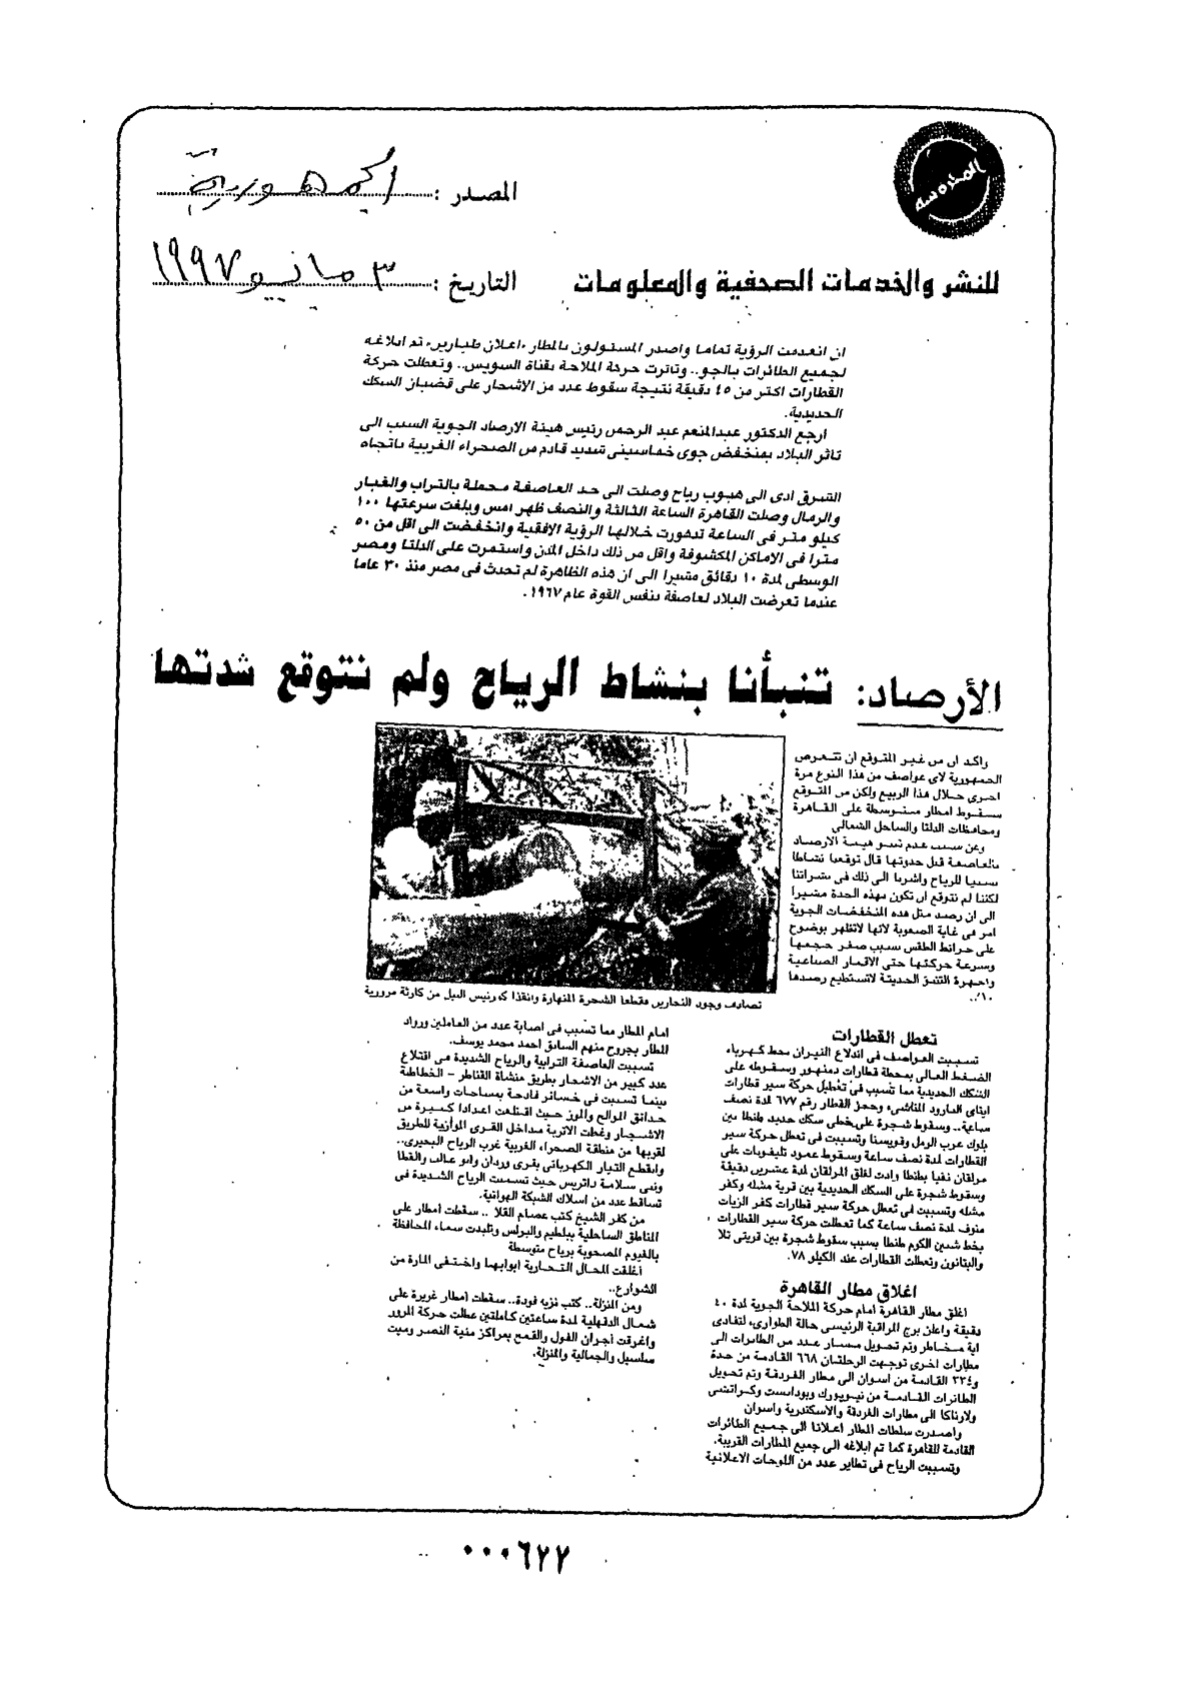 المحروسة
المصدر : الجمهورية
للنشر والخدمات الصحفية والمعلومات
التاريخ : ٣ مايو ١٩٩٧
ان انعدمت الرؤية تماما واصدر المسئولون بالمطار «اعلان طيارين» تم ابلاغه
لجميع الطائرات بالجو.. وتاثرت حركة الملاحة بقناة السويس.. وتعطلت حركة
القطارات اكثر من ٤٥ دقيقة نتيجة سقوط عدد من الاشجار على قضبان السكك
الحديدية.
ارجع الدكتور عبدالمنعم عبد الرحمن رئيس هيئة الارصاد الجوية السبب الى
تاثر البلاد بمنخفض جوى خماسينى شديد قادم من الصحراء الغربية باتجاه
الشرق ادى الى هبوب رياح وصلت الى حد العاصفة محملة بالتراب والغبار
والرمال وصلت القاهرة الساعة الثالثة والنصف ظهر امس وبلغت سرعتها ١٠٠
كيلو متر فى الساعة تدهورت خلالها الرؤية الافقية وانخفضت الى اقل من ٥٠
مترا فى الاماكن المكشوفة واقل من ذلك داخل المدن واستمرت على الدلتا ومصر
الوسطى لمدة ١٠ دقائق مشيرا الى ان هذه الظاهرة لم تحدث فى مصر منذ ٣٠ عاما
عندما تعرضت البلاد لعاصفة بنفس القوة عام ١٩٦٧.
الأرصاد: تنبأنا بنشاط الرياح ولم نتوقع شدتها
واكد ان من غير المتوقع ان تتعرض
الجمهورية لاى عواصف من هذا النوع مرة
اخرى خلال هذا الربيع ولكن من المتوقع
سقوط امطار متوسطة على القاهرة
ومحافظات الدلتا والساحل الشمالى
وعن سبب عدم تنبؤ هيئة الارصاد
بالعاصفة قبل حدوثها قال توقعنا نشاطا
نسبيا للرياح واشرنا الى ذلك فى نشراتنا
لكننا لم نتوقع ان تكون بهذه الحدة مشيرا
الى ان رصد مثل هذه المنخفضات الجوية
امر فى غاية الصعوبة لانها لاتظهر بوضوح
على خرائط الطقس بسبب صغر حجمها
وسرعة حركتها حتى الاقمار الصناعية
واجهزة التنبؤ الحديثة لاتستطيع رصدها
تصادف وجود النجارين فقطعا الشجرة المنهارة وانقذا كورنيش النيل من كارثة مرورية
تعطل القطارات
تسببت العواصف فى اندلاع النيران بخط كهرباء
الضغط العالى بمحطة قطارات دمنهور وسقوطه على
السكك الحديدية مما تسبب فى تعطيل حركة سير قطارات
ايتاى البارود المناشى، وحجز القطار رقم ٦٧٧ لمدة نصف
ساعة.. وسقوط شجرة على خطى سكك حديد طنطا بين
بلوك عرب الرمل وقويسنا وتسببت فى تعطل حركة سير
القطارات لمدة نصف ساعة وسقوط عمود تليفونات على
مزلقان نفيا بطنطا وادت لغلق المزلقان لمدة عشرين دقيقة
وسقوط شجرة على السكك الحديدية بين قرية مشله وكفر
مشله وتسببت فى تعطل حركة سير قطارات كفر الزيات
منوف لمدة نصف ساعة كما تعطلت حركة سير القطارات
بخط شبين الكوم طنطا بسبب سقوط شجرة بين قريتى تلا
والبتانون وتعطلت القطارات عند الكيلو ٧٨.
اغلاق مطار القاهرة
اغلق مطار القاهرة امام حركة الملاحة الجوية لمدة ٤٠
دقيقة واعلن برج المراقبة الرئيسى حالة الطوارئ، لتفادى
اية مخاطر وتم تحويل مسار عدد من الطائرات الى
مطارات اخرى توجهت الرحلتان ٦٦٨ القادمة من جدة
و٢٣٤ القادمة من اسوان الى مطار الغردقة وتم تحويل
الطائرات القادمة من نيويورك وبودابست وكراتشى
ولارناكا الى مطارات الغردقة والاسكندرية واسوان
واصدرت سلطات المطار اعلانا الى جميع الطائرات
القادمة للقاهرة كما تم ابلاغه الى جميع المطارات القريبة.
وتسببت الرياح فى تطاير عدد من اللوحات الاعلانية
امام المطار مما تسبب فى اصابة عدد من العاملين ورواد
المطار بجروح منهم السائق احمد محمد يوسف.
تسببت العاصفة الترابية والرياح الشديدة فى اقتلاع
عدد كبير من الاشجار بطريق منشاة القناطر - الخطاطبة
بينما تسببت فى خسائر فادحة بمساحات واسعة من
حدائق الموالح والموز حيث اقتلعت اعدادا كبيرة من
الاشجار وغطت الاتربة مداخل القرى الموازية للطريق
لقربها من منطقة الصحراء الغربية غرب الرياح البحيرى..
وانقطع التيار الكهربائى بقرى وردان وابو غالب والقطا
وبنى سلامة واتريس حيث تسببت الرياح الشديدة فى
تساقط عدد من اسلاك الشبكة الهوائية.
من كفر الشيخ كتب عصام القلا .. سقطت امطار على
المناطق الساحلية ببلطيم والبرلس وتلبدت سماء المحافظة
بالغيوم المصحوبة برياح متوسطة
أغلقت المحال التجارية ابوابها واختفى المارة من
الشوارع..
ومن المنزلة.. كتب نزيه فودة.. سقطت امطار غزيرة على
شمال الدقهلية لمدة ساعتين كاملتين عطلت حركة المرور
واغرقت أجران الفول والقمح بمراكز منية النصر وميت
سلسيل والجمالية والمنزلة.
٠٠٠٦٢٢